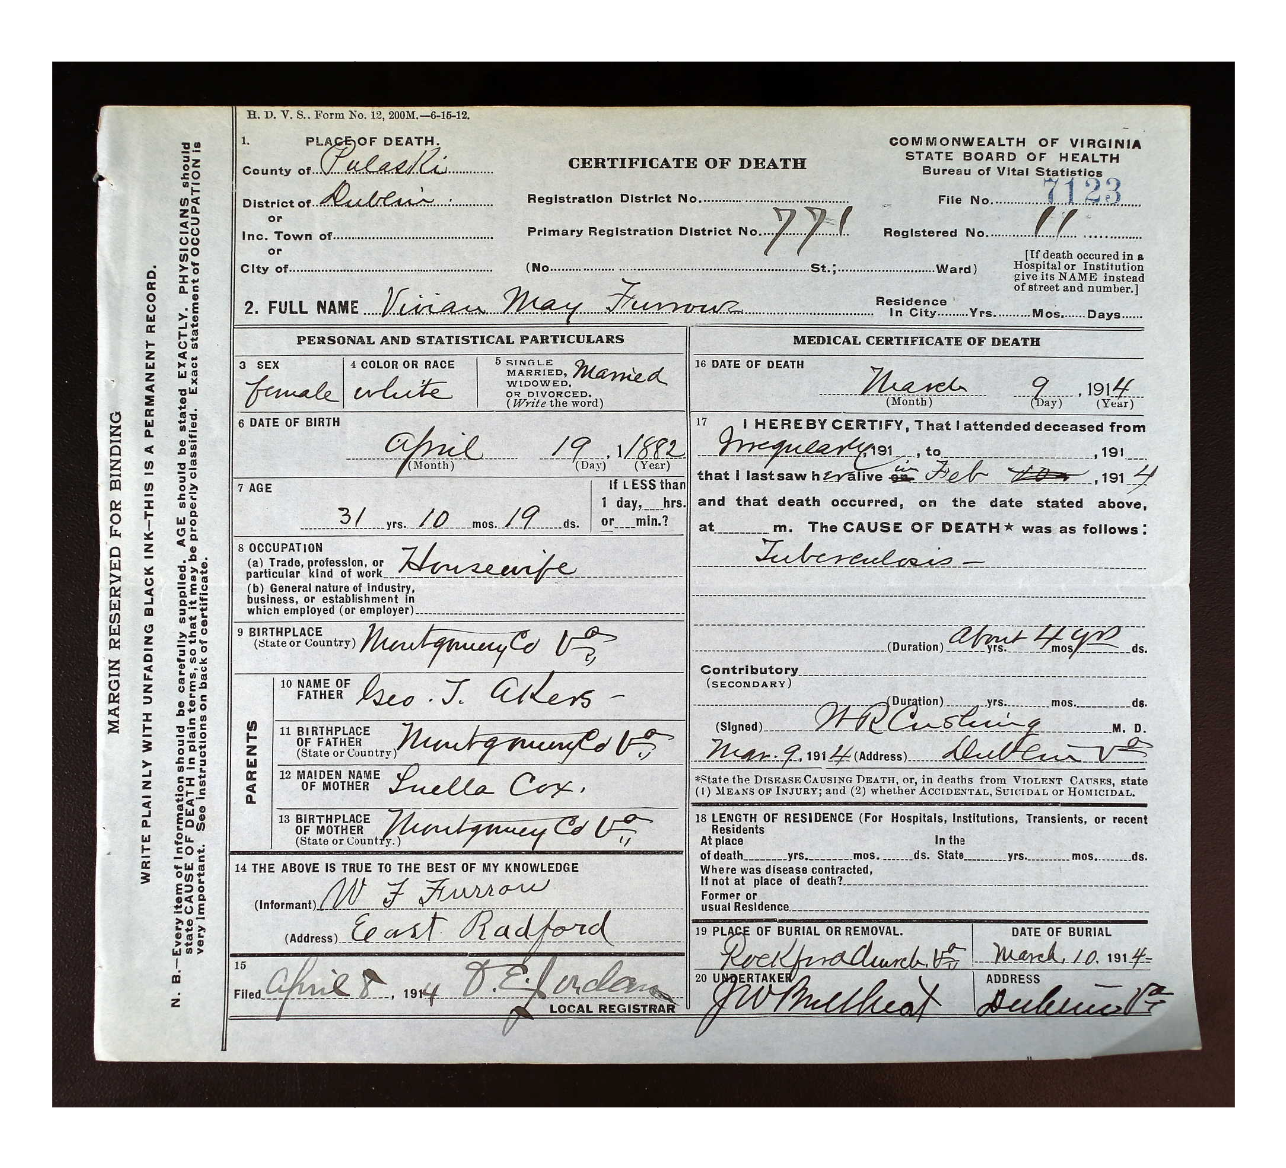 H. D. V. S., Form No. 12, 200M.—6-15-12.
1. PLACE OF DEATH.
County of Pulaski
District of Dublin
or
Inc. Town of
or
City of
CERTIFICATE OF DEATH
Registration District No.
Primary Registration District No. 771
(No. St.; Ward)
COMMONWEALTH OF VIRGINIA
STATE BOARD OF HEALTH
Bureau of Vital Statistics
File No. 7123
Registered No. 11
[If death occured in a
Hospital or Institution
give its NAME instead
of street and number.]
2. FULL NAME Vivian May Furrow
Residence
In City Yrs. Mos. Days
PERSONAL AND STATISTICAL PARTICULARS
3 SEX
female
4 COLOR OR RACE
white
5 SINGLE
MARRIED,
WIDOWED,
OR DIVORCED.
(Write the word)
Married
6 DATE OF BIRTH
April 19, 1882
(Month) (Day) (Year)
7 AGE
31 yrs. 10 mos. 19 ds.
If LESS than
1 day, hrs.
or min.?
8 OCCUPATION
(a) Trade, profession, or
particular kind of work Housewife
(b) General nature of Industry,
business, or establishment in
which employed (or employer)
9 BIRTHPLACE
(State or Country) Montgomery Co Va
PARENTS
10 NAME OF
FATHER Geo. T. Akers
11 BIRTHPLACE
OF FATHER
(State or Country) Montgomery Co Va
12 MAIDEN NAME
OF MOTHER Luella Cox.
13 BIRTHPLACE
OF MOTHER
(State or Country.) Montgomery Co Va
14 THE ABOVE IS TRUE TO THE BEST OF MY KNOWLEDGE
(Informant) W F Furrow
(Address) East Radford
15
Filed April 8, 1914 D. E. Jordan
LOCAL REGISTRAR
MEDICAL CERTIFICATE OF DEATH
16 DATE OF DEATH
March 9, 1914
(Month) (Day) (Year)
17 I HEREBY CERTIFY, That I attended deceased from
Irregularly, 191 , to , 191
that I last saw her alive on in Feb , 1914
and that death occurred, on the date stated above,
at m. The CAUSE OF DEATH* was as follows:
Tuberculosis —
(Duration) About 4 yrs yrs. mos. ds.
Contributory
(SECONDARY)
(Duration) yrs. mos. ds.
(Signed) W R Cushing M. D.
Mar. 9, 1914 (Address) Dublin Va
*State the DISEASE CAUSING DEATH, or, in deaths from VIOLENT CAUSES, state
(1) MEANS OF INJURY; and (2) whether ACCIDENTAL, SUICIDAL or HOMICIDAL.
18 LENGTH OF RESIDENCE (For Hospitals, Institutions, Transients, or recent
Residents
At place In the
of death yrs. mos. ds. State yrs. mos. ds.
Where was disease contracted,
If not at place of death?
Former or
usual Residence
19 PLACE OF BURIAL OR REMOVAL.
Rockford Church, Va
DATE OF BURIAL
March, 10, 1914
20 UNDERTAKER
J W
ADDRESS
Dublin Va
MARGIN RESERVED FOR BINDING
WRITE PLAINLY WITH UNFADING BLACK INK—THIS IS A PERMANENT RECORD.
N. B.—Every item of Information should be carefully supplied. AGE should be stated EXACTLY. PHYSICIANS should
state CAUSE OF DEATH in plain terms, so that it may be properly classified. Exact statement of OCCUPATION is
very important. See instructions on back of certificate.